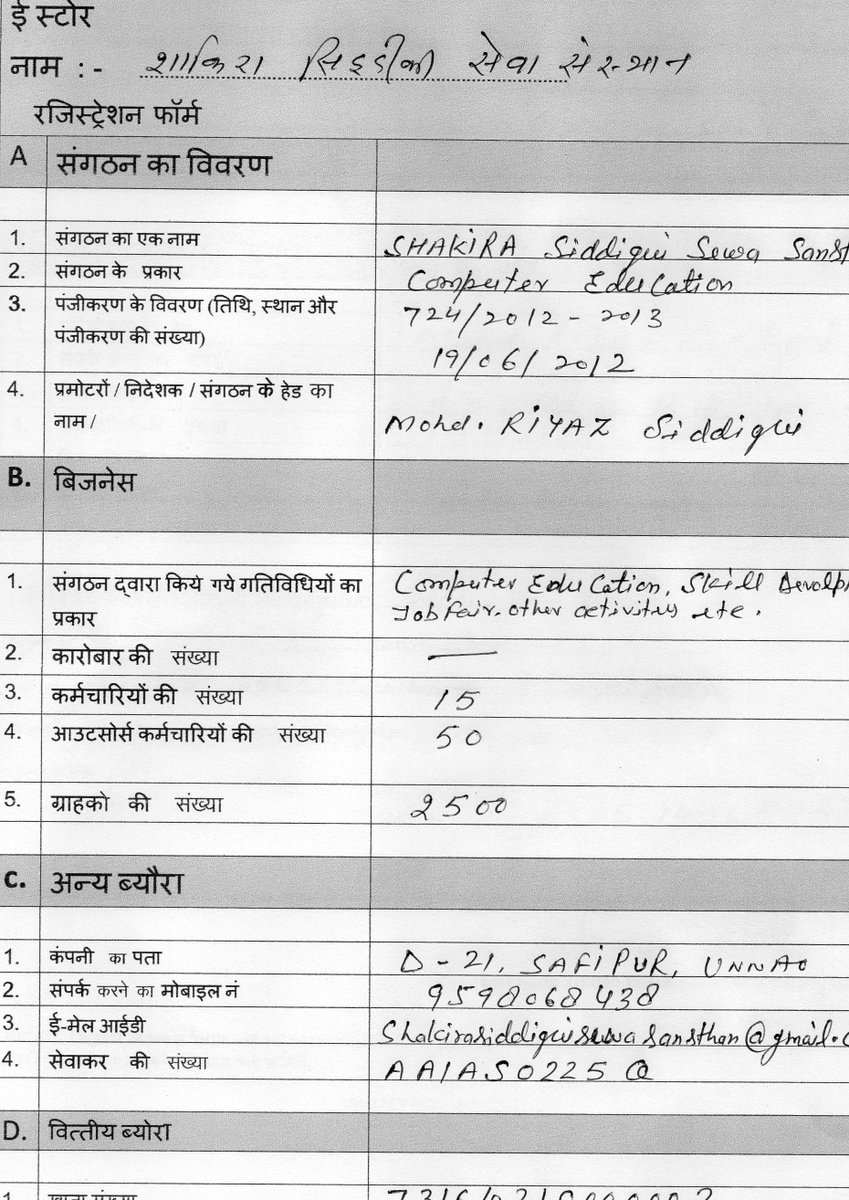 ई स्टोर
नाम :- शाकिरा सिद्दीकी सेवा संस्थान
रजिस्ट्रेशन फॉर्म
A संगठन का विवरण
1. संगठन का एक नाम SHAKIRA Siddiqui Sewa Sanst
2. संगठन के प्रकार Computer Education
3. पंजीकरण के विवरण (तिथि, स्थान और 724/2012-2013
पंजीकरण की संख्या) 19/06/2012
4. प्रमोटरों / निदेशक / संगठन के हेड का
नाम / Mohd. RIYAZ Siddiqui
B. बिजनेस
1. संगठन द्वारा किये गये गतिविधियों का Computer Education, Skill
प्रकार Job fair. other activitys etc.
2. कारोबार की संख्या —
3. कर्मचारियों की संख्या 15
4. आउटसोर्स कर्मचारियों की संख्या 50
5. ग्राहको की संख्या 2500
C. अन्य ब्यौरा
1. कंपनी का पता D-21, SAFIPUR, UNNAO
2. संपर्क करने का मोबाइल नं 9598068438
3. ई-मेल आईडी Shakirasiddiquisewasansthan@gmail.c
4. सेवाकर की संख्या AAIAS0225Q
D. वित्तीय ब्योरा
1. खाता संख्या